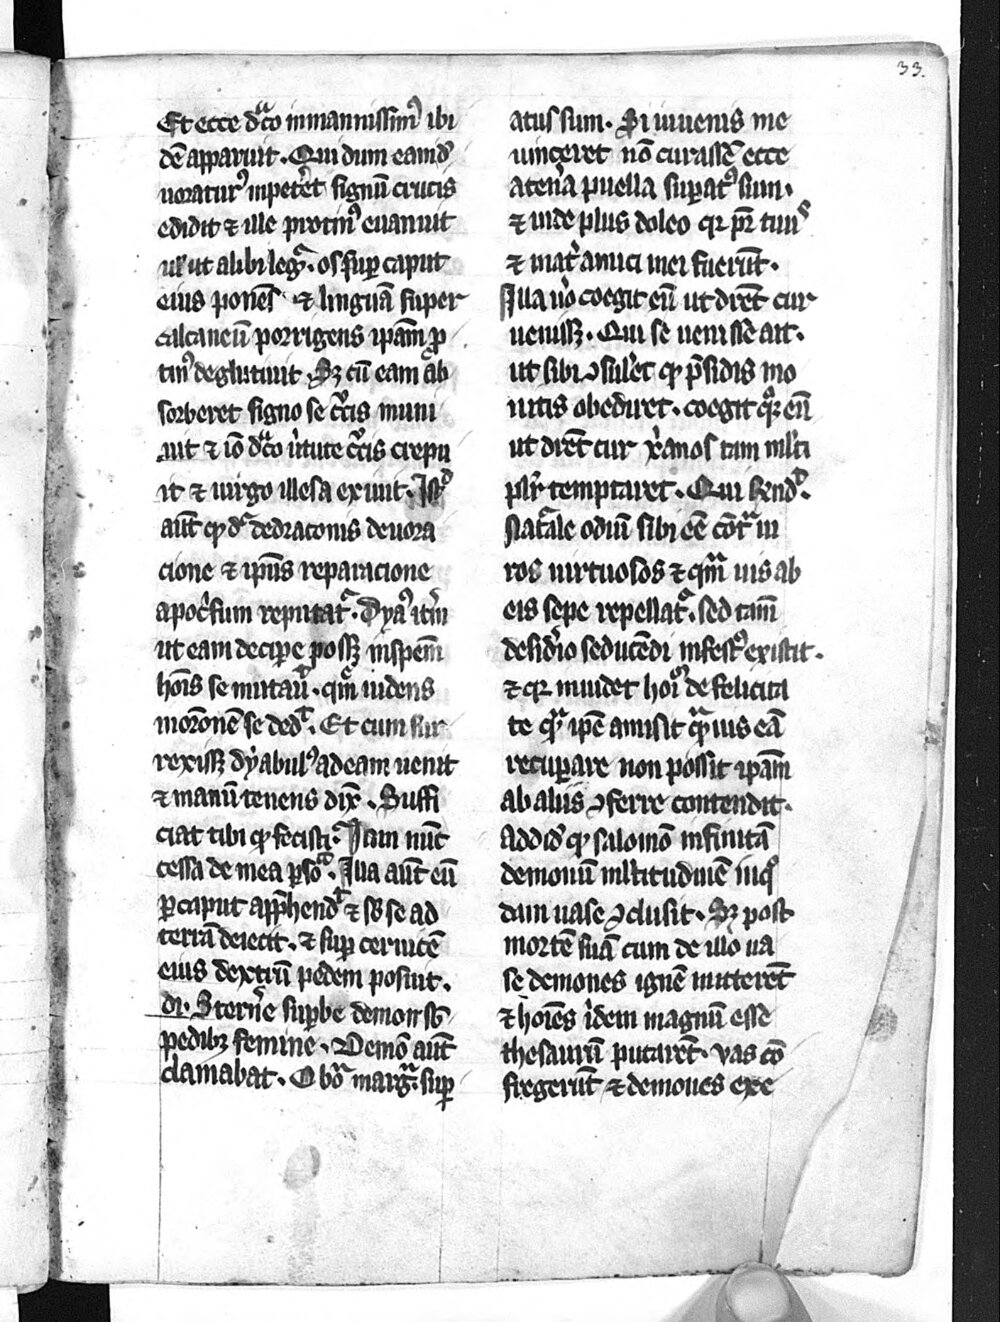 33.
Et ecce dͣco inmannissimꝰ ibi
dē apparuit. Qui dum eam dͤ
uoraturꝰ inpetēt signū crucis
edidit ⁊ ille protinꝰ euanuit
ul̓ ut alibi legͬ. os suꝑ caput
eius ponēs ⁊ linguā super
calcaneū porrigens ipam̄ ꝓ
tinꝰ deglutiuit. Sꝫ cū eam ab
sorberet signo se cͨis muni
uit ⁊ iō dͣco ùtute cͨis crepu
it ⁊ uirgo illesa exiuit. Istͩ
aūt ꝙ dͬ de draconis deuora
cione ⁊ ipiūs reparacione
apoc̓fum reputatͬ. Dyaꝰ itm̄
ut eam decipe possꝫ in spem̄
hoīs se mutau̓. qm̄ uidens
in oronē se dedͭ. Et cum sur
rexissꝫ dyabulꝰ ad eam uenit
⁊ manū tenens dix̄. Suffi
ciat tibi ꝙ fecisti. Iam nūc
cessa de mea ꝑsōͣ. Illa aūt eū
ꝑ caput appͬhendͭ ⁊ sbͫ se ad
terrā deiecit. ⁊ suꝑ ceruicē
eius dextrū pedem posuit.
di. Sterne̓ suꝑbe demon sbͫ
pedibꝫ femine. Demō aūt
clamabat. O bōͣ margͣ. suꝑ
atus sum. Si iuuenis me
uinceret nō curassē ecce
a ten̓a puella supatꝰ sum.
⁊ inde plus doleo qꝛ pr̄ tuuˢ
⁊ mat̓ amici mei fuerūt.
Illa u̓o coegit eū ut dir̄et cur
uenissꝫ. Qui se uenisse ait.
ut sibi ꝯsul̓et ꝙ p̄sidis mo
nitis obediret. coegit qͦꝫ eū
ut dir̄et cur x̓anos tam ml̓ti
pl̓r temptaret. Qui rn̄dͭ.
Natͣale odiū sibi eē cōtͣ ui
ros uirtuosos ⁊ qm̄ͣ uis ab
eis sepe repellatͬ. sed tam̄
desid̓io seducēdi infestꝰ existit.
⁊ qꝛ inuidet hoīͥ de felicita
te qͣ ipē amisit qͣuis eā
recuꝑare non possit ipam̄
ab aliis ꝯferre contendit.
Addidͭ ꝙ salomō infinitā
demonū ml̓titudinē in qͦ
dam uase ꝯclusit. Sꝫ post
mortē suā cum de illo ua
se demones ignē mitterēt
⁊ hoīes ìdem magnū esse
thesaurū putarēt. vas cō
fregerūt ⁊ demones exe